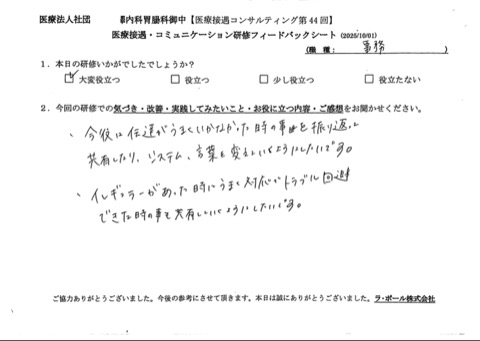 医療法人社団　内科胃腸科御中【医療接遇コンサルティング第44回】
医療接遇・コミュニケーション研修フィードバックシート (2025/10/01)
(職種： 事務 )
1．本日の研修いかがでしたでしょうか？
☑ 大変役立つ　□ 役立つ　□ 少し役立つ　□ 役立たない
2．今回の研修での気づき・改善・実践してみたいこと・お役に立つ内容・ご感想をお聞かせください。
・今後は伝達がうまくいかなかった時の事を振り返って
共有したり、システム、言葉を変えていくようにしたいです。
・イレギュラーがあった時にうまく対応やトラブル回避
できた時の事を共有していくようにしたいです。
ご協力ありがとうございました。今後の参考にさせて頂きます。本日は誠にありがとうございました。ラ・ポール株式会社